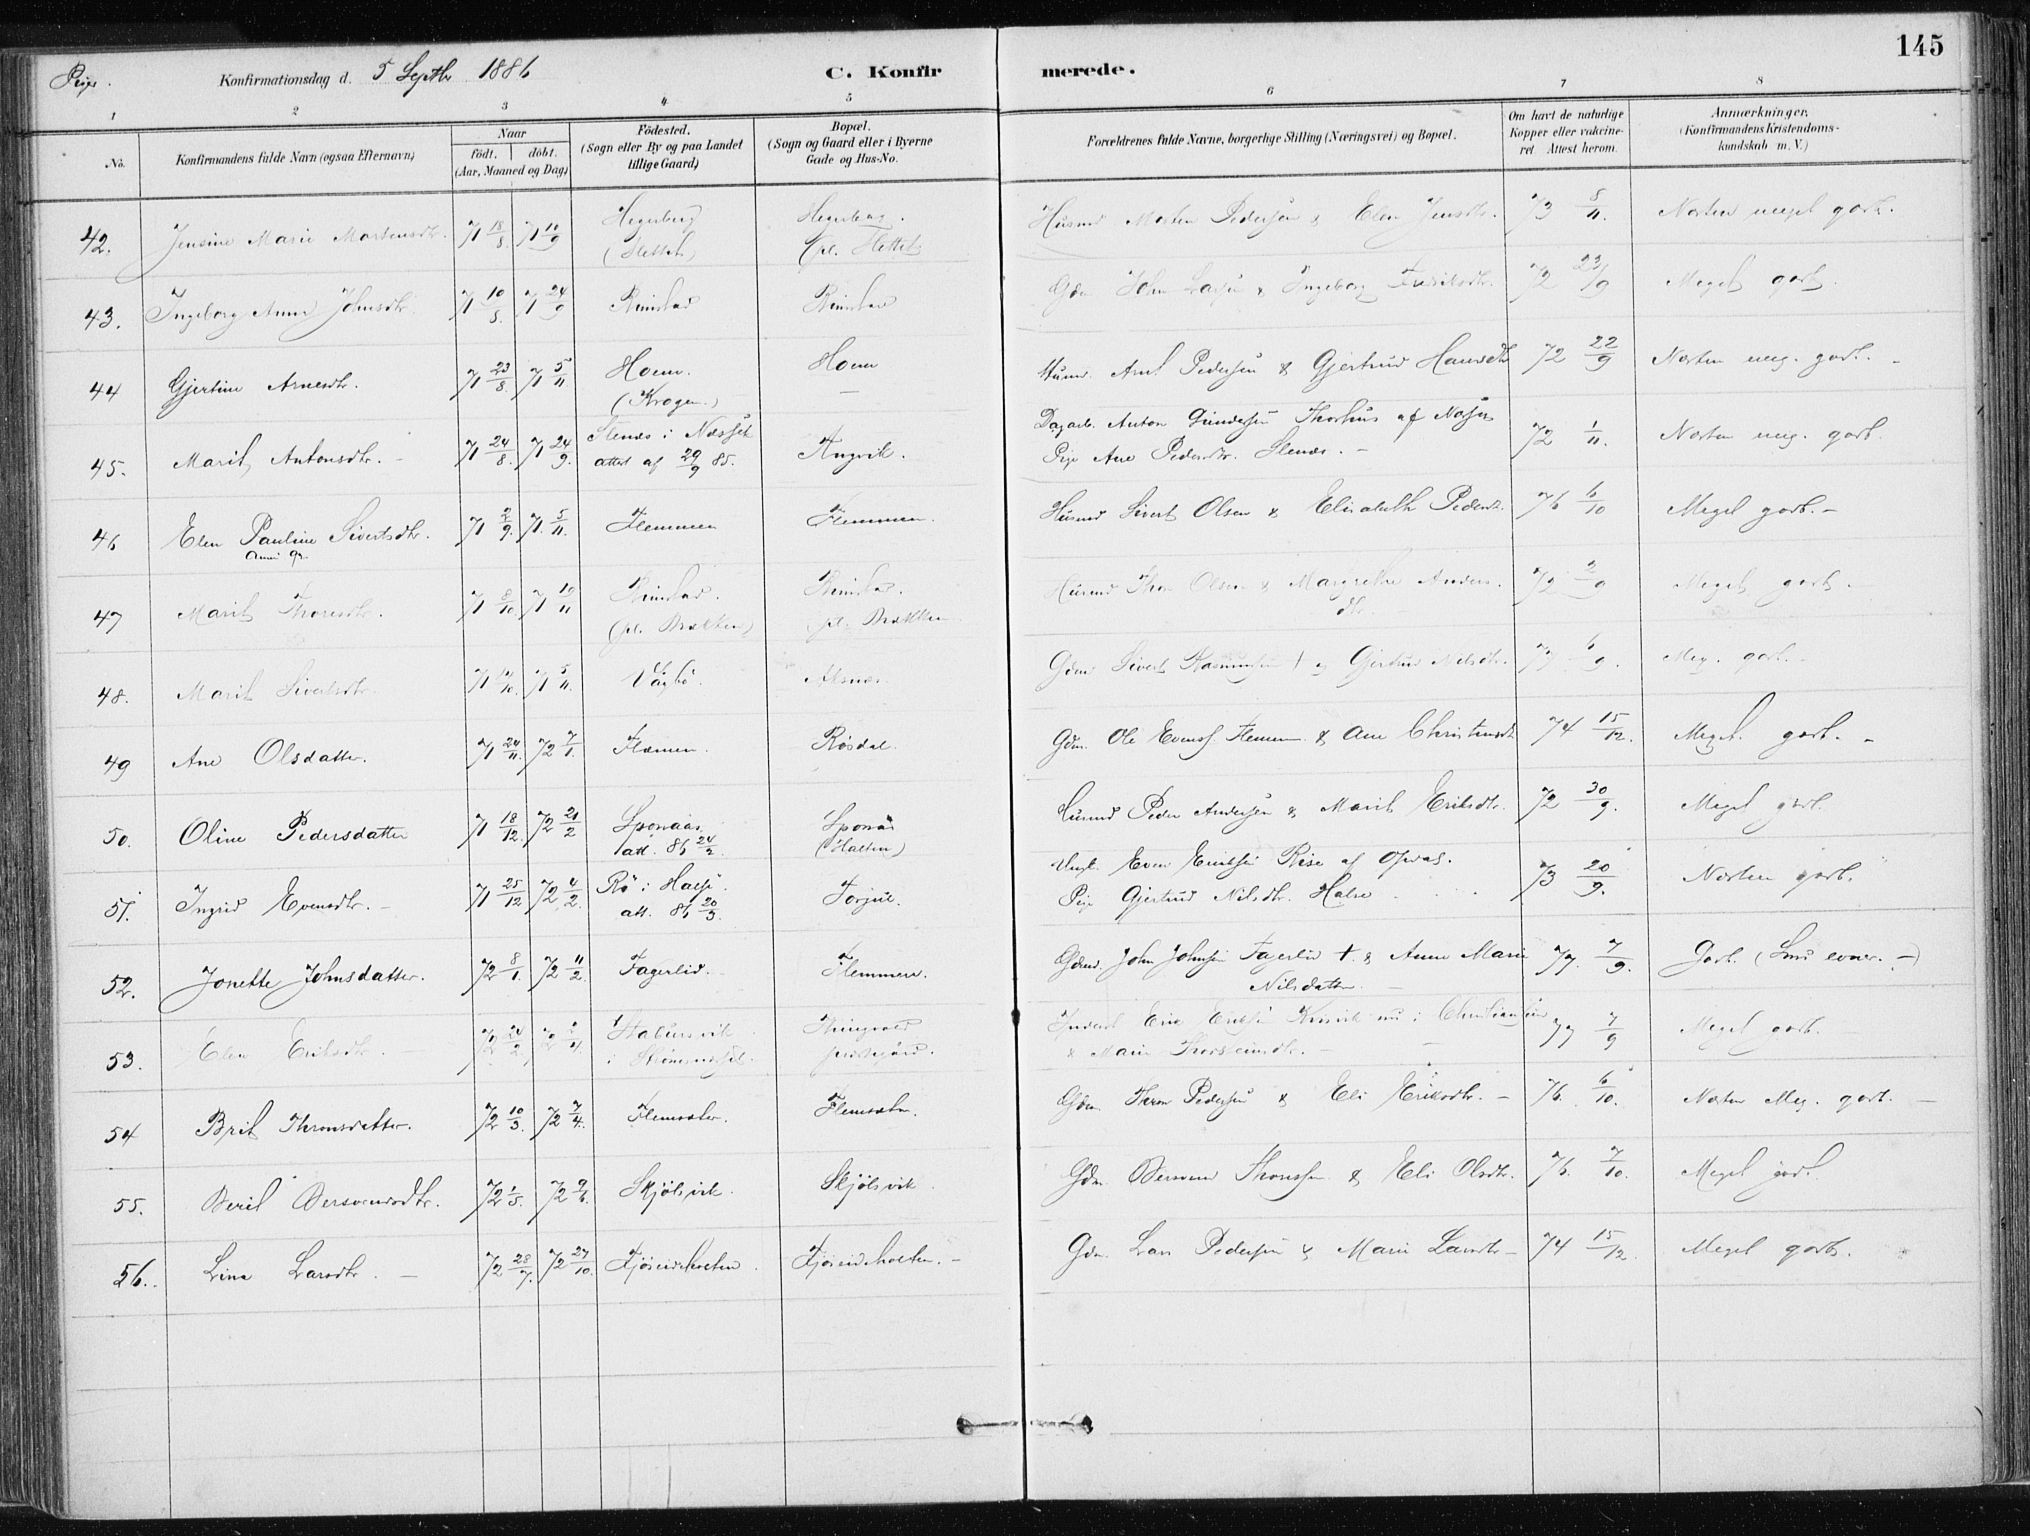 145
Piger. Konfirmationsdag d. 5 Septbr 1886 C. Konfirmerede.
1 2 3 4 5 6 7 8
No. Konfirmandens fulde Navn (ogsaa Efternavn) Naar født. døbt. (Aar, Maaned og Dag) Fødested. (Sogn eller By og paa Landet tillige Gaard) Bopæl. (Sogn og Gaard eller i Byerne Gade og Hus-No. Forældrenes fulde Navne, borgerlige Stilling (Næringsvei) og Bopæl. Om havt de naturlige Kopper eller vakcineret. Attest herom. Anmærkninger. (Konfirmandens Kristendomskundskab m. V.)
42. Jensine Marie Mortensdtr. 71 18/8. 71 10/9 Hegerberg (Slettet) Hegerberg. (pl. Slettet) Husmd Morten Pedersen & Elen Jensdtr. 73 5/11. Næsten meget godt.
43. Ingeborg Anna Johnsdtr. 71 10/8. 71 24/9 Rimstad Rimstad Gdm. John Larsen & Ingeborg Fredriksdtr. 72 23/9 Meget godt.
44 Gjertine Arnesdtr. 71 23/8. 71 5/11 Hoem. (Krogen.) Hoem — Husmd. Arnt Pedersen & Gjertrud Hansdtr 72 22/9 Næsten meg. godt. -
45. Marit Antonsdtr. - 71 24/8. 71 24/9. Stenæs i Næsset attest af 29/9 85. Angvik. Dagarb. Anton Gundersen Thorhus af Næsset
Pige Ane Pedersdtr. Stenæs. - 72 1/11. Næsten meg. godt.
46 Elen Pauline Sivertsdtr. 71 2/9. 71. 5/11. Flemmen Flemmen. Husmd Sivert Olsen & Elisabeth Pedersdtr. 76 6/10 Meget godt. -
47 Marit Thoresdtr. 71 8/10. 71 19/11 Rimstad. (pl. Brækken) Rimstad. pl. Brækken Husmd Thore Olsen & Margrethe Anders-
dtr. - 72 2/9 Meget godt.
48. Marit Sivertsdtr. 71 14/10. 71 5/11. Vågbø. Aksnæs. Gdm. Sivert Rasmussen † og Gjertrud Nilsdtr. 77 6/9. Meg. godt. -
49 Ane Olsdatter. 71 24/11. 72 7/1. Flemmen. Røsdal. Gdm. Ole Evens. Flemmen & Ane Christensdtr. 74 15/12. Meget godt. -
50. Oline Pedersdatter 71 18/12. 72 21/2 Sponaas. att. 86 24/2. Sponås (Halten) Husmd Peder Andersen & Marit Eriksdtr. 72 30/9. Meget godt.
51. Ingrid Evensdtr. - 71 25/12 72 4/2. Rø i Halse. att. 86 20/3. Torjul. Ungk. Even Eriksen Rise af Opdal.
Pige Gjertrud Nilsdtr. Halse 73 20/9. Næsten godt.
52. Jonette Johnsdatter. 72 8/1. 72 11/2. Fagerlid. Flemmen. Gdmd. John Johnsen Fagerlid †. & Anne Marie
Nilsdatter. - 77. 7/9. Godt. (Små evner. -)
53. Elen Eriksdtr. 72 24/2 i Strømsneset. Thingvold prestegård. Erik Eriksen nu i Christiansund
& Marie Thorsteinsdtr. - 77 7/9 Meget godt.
54 Brit Thronsdatter. 72 10/3. 72 7/4. Flemsæter. Flemsæter Gdm. Thron Pedersen & Eli Eriksdtr. - 76. 6/10. Næsten Meg. godt. -
55. Berit Bersvensdtr. 72 1/5. 72 9/6. Skjølsvik. Skjølsvik. Gdm. Bersven Thronssen & Eli Olsdtr. 76. 7/10. Meget godt.
56. Lina Larsdtr. - 72 28/7. 72 27/10. Fjøseidsholten. Fjøseidsholten. - Gdm. Lars Pedersen & Marie Larsdtr - 74 15/12. Meget godt.